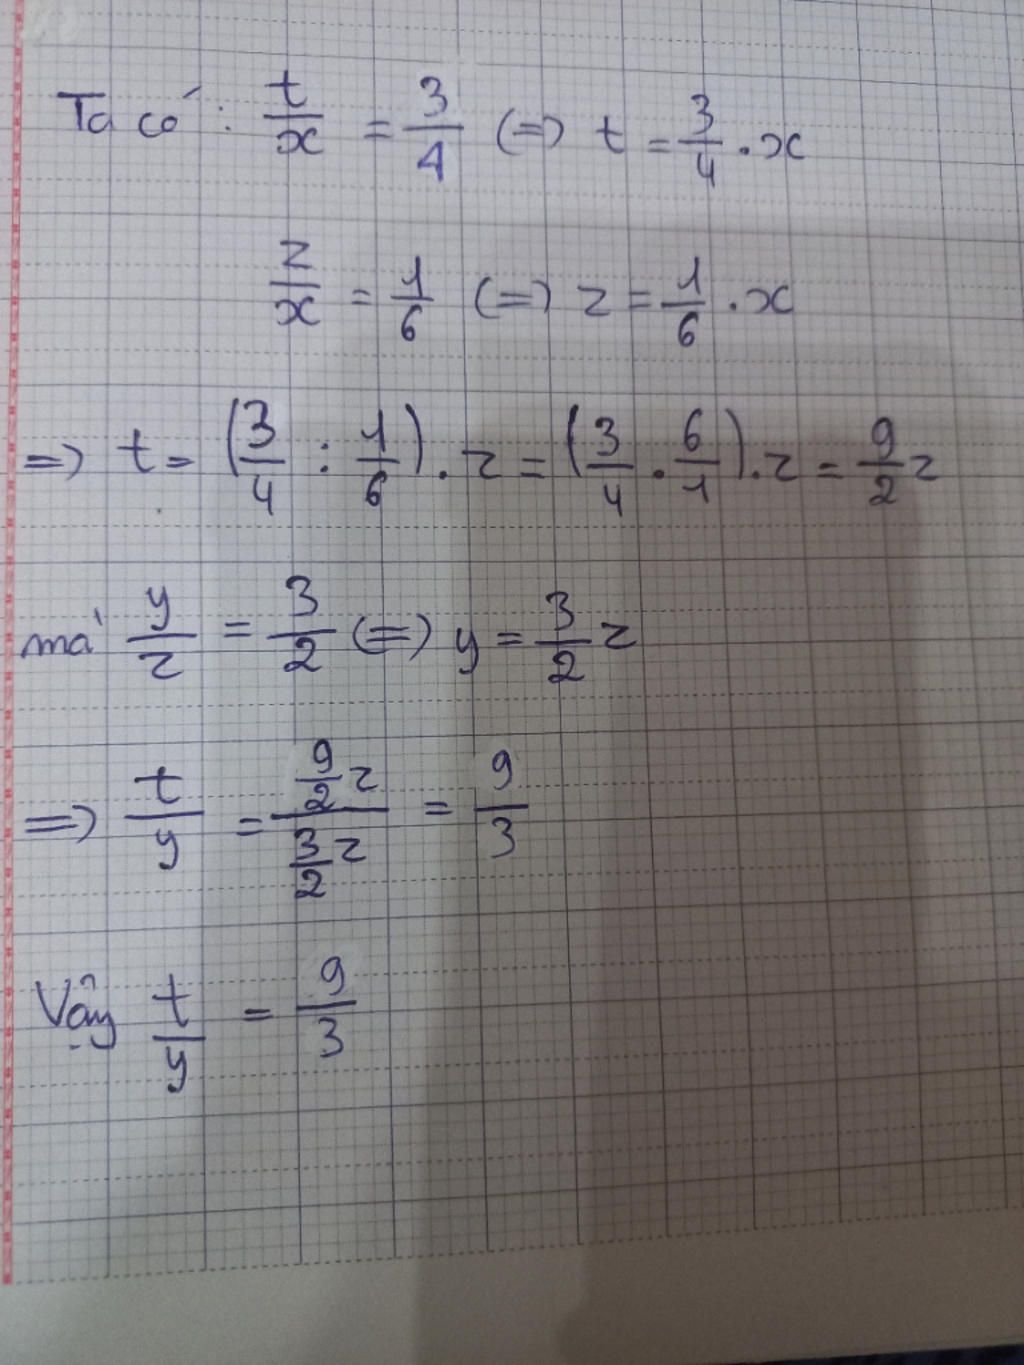 Ta có: t/x = 3/4 (=) t = 3/4 . x
z/x = 1/6 (=) z = 1/6 . x
=) t = (3/4 : 1/6) . z = (3/4 . 6/1) . z = 9/2 z
má y/z = 3/2 (=) y = 3/2 z
=) t/y = (9/2 z)/(3/2 z) = 9/3
Vậy t/y = 9/3